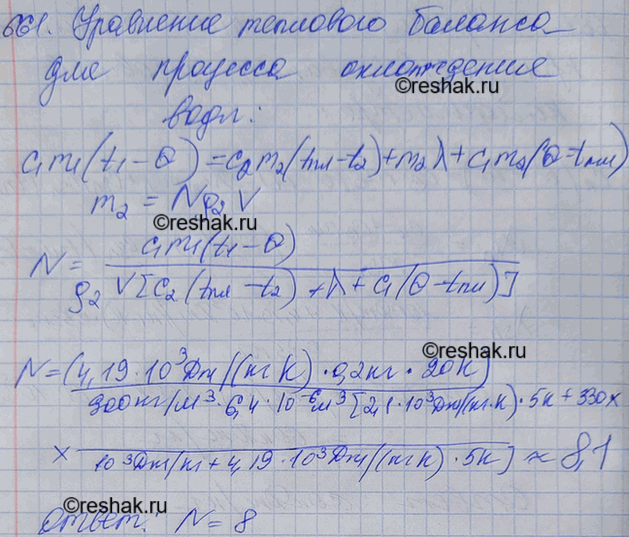 661. Уравнение теплового баланса
для процесса охлаждения
©reshak.ru
воды:
c₁m₁(t₁ − θ) = c₂m₂(tпл − t₂) + m₂λ + c₁m₂(θ − tпл)
m₂ = Nρ₂V
©reshak.ru
N = c₁m₁(t₁ − θ) / ρ₂V[c₂(tпл − t₂) + λ + c₁(θ − tпл)]
N = (4,19 · 10³ Дж/(кг К) · 0,2 кг · 20 К)
900 кг/м³ · 6,4 · 10⁻⁶ м³ [2,1 · 10³ Дж/(кг·К) · 5К + 330 ×
× 10³ Дж/кг + 4,19 · 10³ Дж/(кг К) · 5К] ≈ 8,1
©reshak.ru
©reshak.ru
Ответ: N = 8